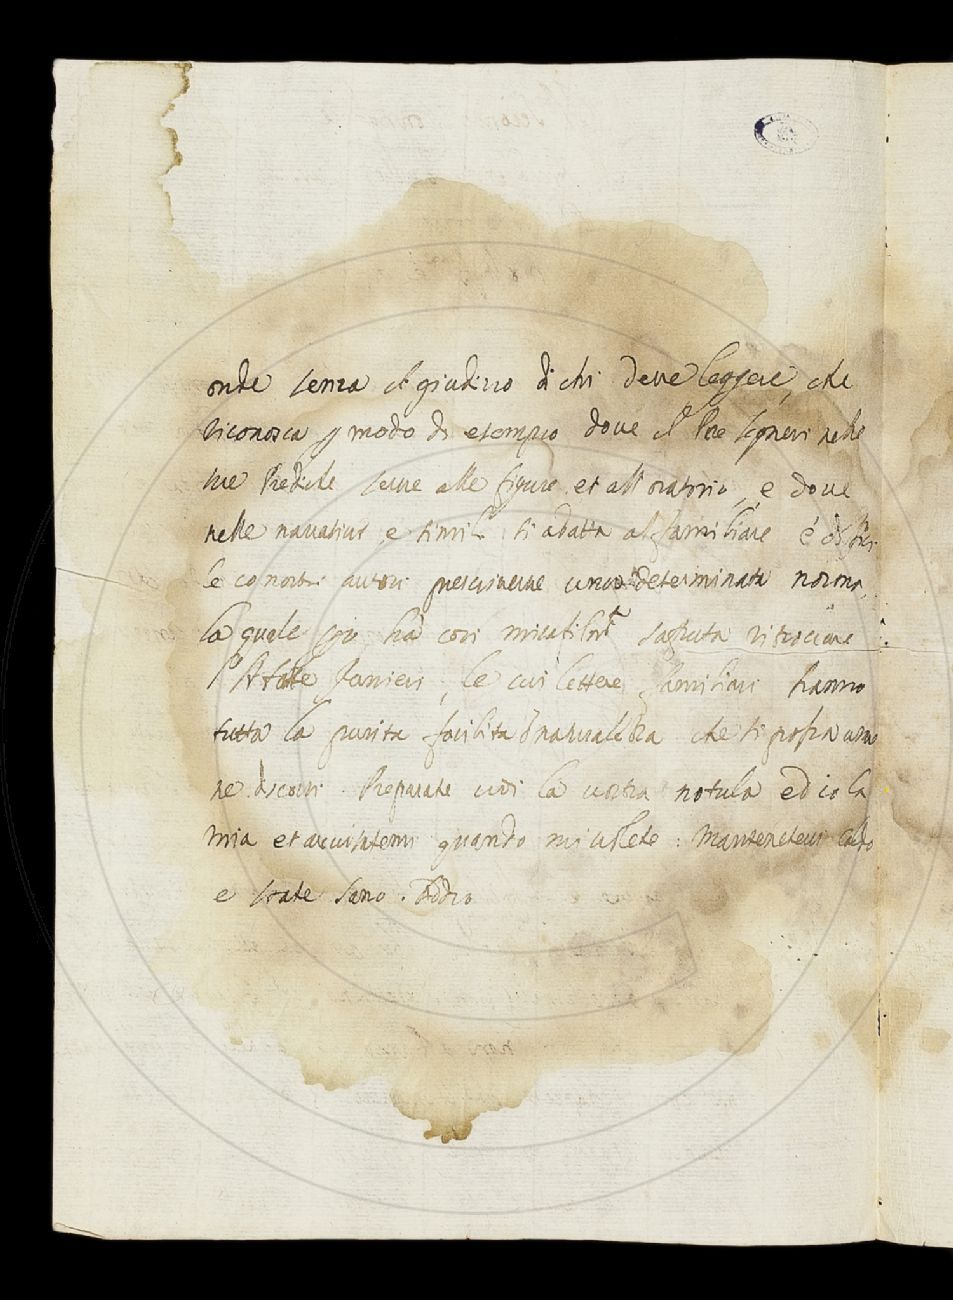 onde senza il giudizio di chi deve leggere, che
riconosca p modo di esempio dove il Pre Segneri nelle
sue Prediche serve alle figure et all oratorio, e dove
nelle narrative e simili si adatta al familiare é
le co nostri autori prescriverne una determinata norma,
la quale più ha così
l' Abate , le cui lettere familiari hanno
tutta la purità facilità naturalezza che si possa
ne discorsi. Preparate voi la vostra notula ed io la
mia et avvisatemi quando mi volete: Mantenetevi caldo
e state sano. Addio